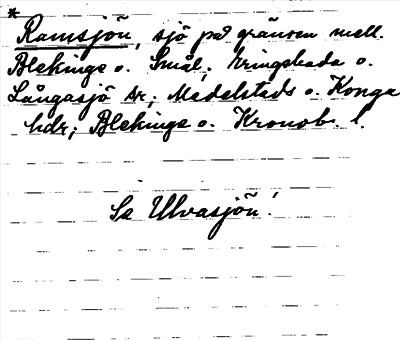 * Ramsjön, sjö på gränsen mell.
Blekinge o. Smål, Tvingshada o.
Långasjö snr; Medelstads o. Konga
hdr; Blekinge o. Kronob. l.
Se Ulvasjön!